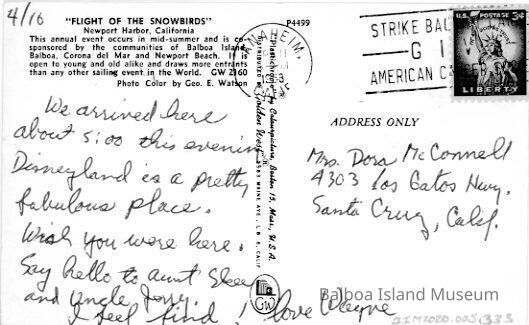 4/16
"FLIGHT OF THE SNOWBIRDS"
Newport Harbor, California
This annual event occurs in mid-summer and is co-
sponsored by the communities of Balboa Island,
Balboa, Corona del Mar and Newport Beach. It is
open to young and old alike and draws more entrants
than any other sailing event in the World. GW 2160
Photo Color by Geo. E. Watson
P4499
We arrived here
about 5:00 this evening
Disneyland is a pretty
fabulous place.
Wish you were here.
Say hello to aunt
and Uncle Jerry.
I feel find! love Wayne
ANAHEIM,
STRIKE BAC
G I
AMERICAN C
U.S. POSTAGE 3¢
LIBERTY
ADDRESS ONLY
Mrs. Dora McConnell
4303 Los Gatos Hwy.
Santa Cruz, Calif.
GW
Balboa Island Museum